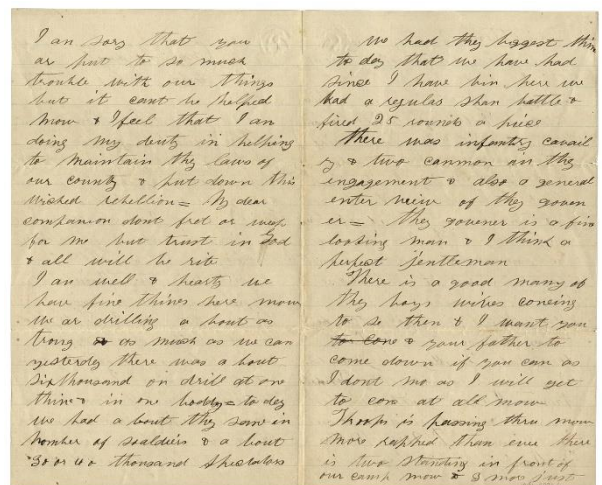 I an sory that you
ar put to so much
trouble with our things
but it cant be helped
now & I feel that I an
doing my deuty in helping
to maintain they laws of
our county & put down this
wicked rebellion = My dear
companion dont fret or weep
for me but trust in God
& all will be rite
I an well & hearty we
have fine thines here now
we ar drilling a bout as
trong as much as we can
yesterdy there was a bout
six thousand on drill at one
thine & in one boddy = to day
we had a bout they same in
nomber of soaldiers & a bout
30 or 40 thousand spectators
we had they biggest thin
to day that we have had
since I have bin here we
had a regular shan battle &
fired 25 rounds a piece
there was infantry cavail
ry & two canmon an they
engagement & also a general
enter veiw of they goven
er = they govener is a fine
looking man & I think a
perfect gentleman
There is a good many of
they boys wives coneing
to se then & I want you
to cone & your father to
come down if you can as
I dont no as I will get
to con at all now
Troops is passing thru now
more rapped than ever there
is two standing in front of
our camp now & 3 mor just